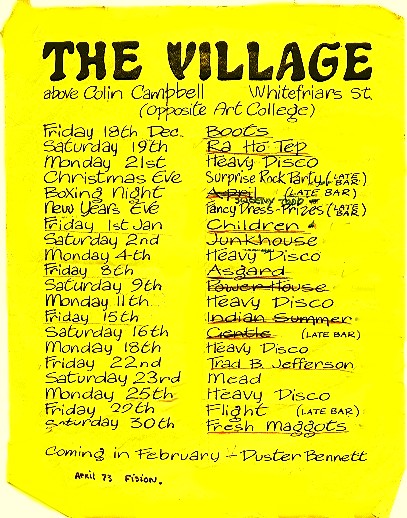 THE VILLAGE
above Colin Campbell Whitefriars St.
(Opposite Art College)
Friday 18th Dec. Boots
Saturday 19th Ra Ho Tep
Monday 21st Heavy Disco
Christmas Eve Surprise Rock Party (LATE BAR)
Boxing Night April (LATE BAR)
New Years Eve Fancy Dress-Prizes (LATE BAR)
Friday 1st Jan Children
Saturday 2nd Junkhouse
Monday 4th Heavy Disco
Friday 8th Asgard
Saturday 9th Power House
Monday 11th Heavy Disco
Friday 15th Indian Summer
Saturday 16th Gentle (LATE BAR)
Monday 18th Heavy Disco
Friday 22nd Trad B. Jefferson
Saturday 23rd Mead
Monday 25th Heavy Disco
Friday 29th Flight (LATE BAR)
Saturday 30th Fresh Maggots
Coming in February - Duster Bennett
APRIL 73 FISION.